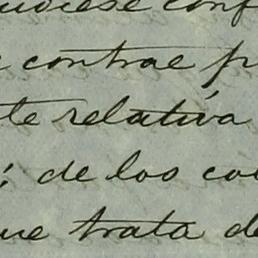 udiese conf
contrae p
te relativa
; de los co
ue trata de